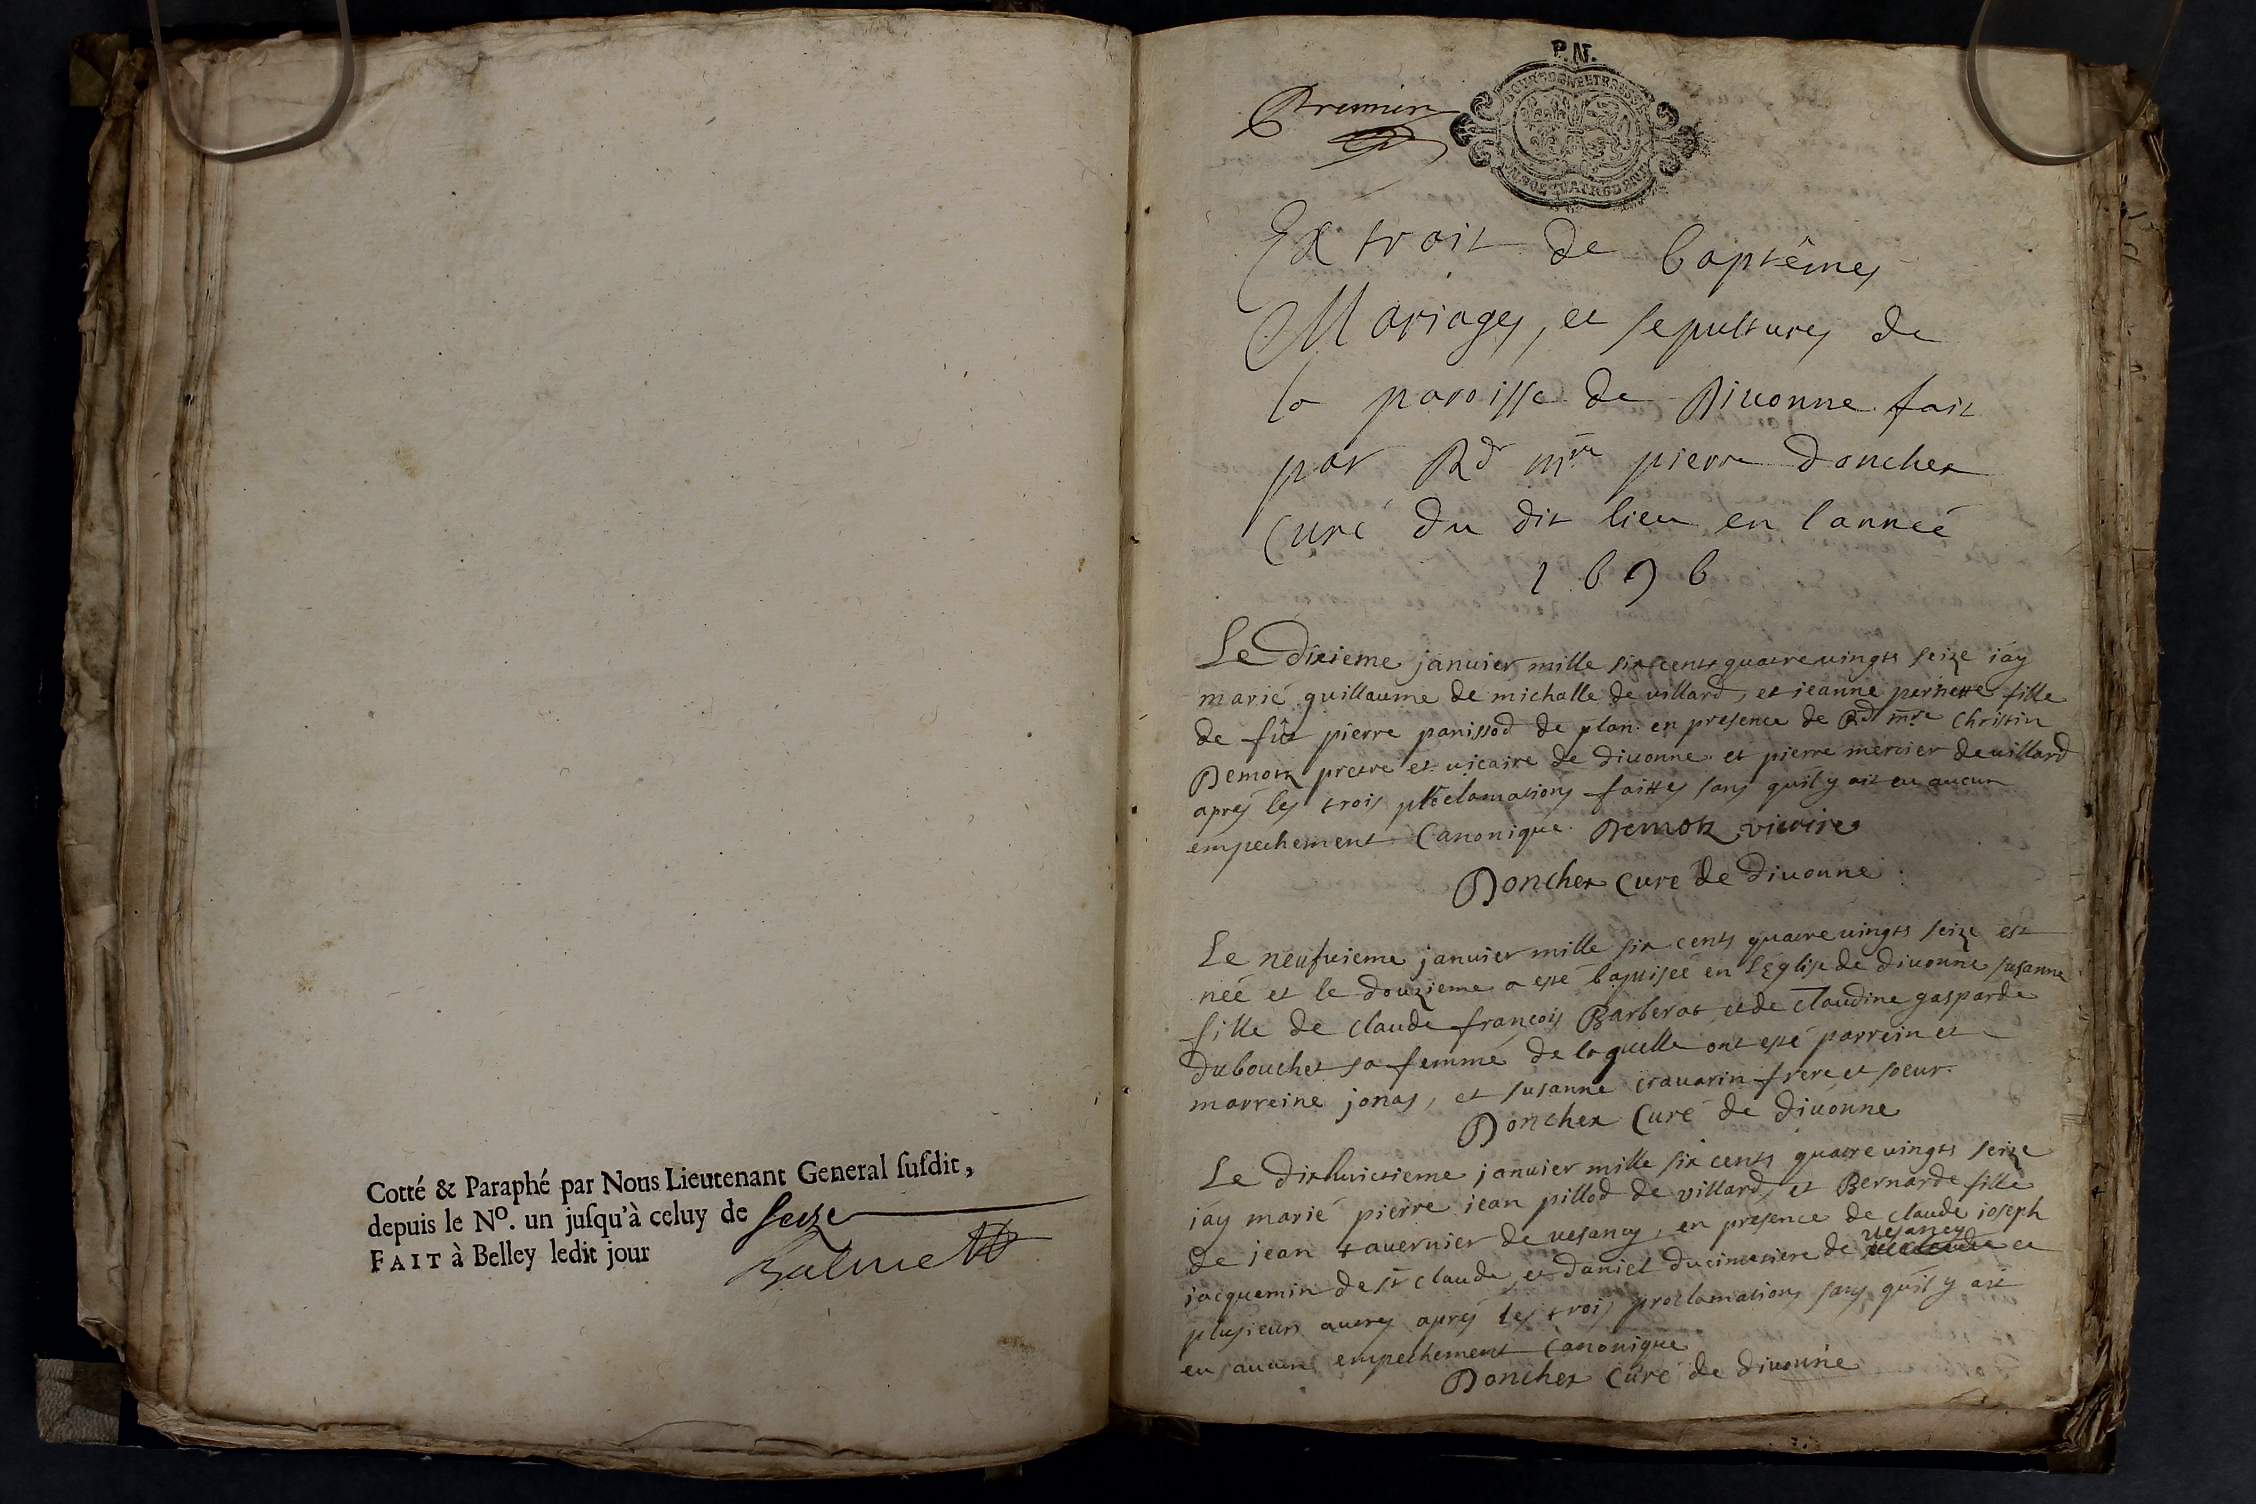 Cotté & Paraphé par Nous Lieutenant General susdit,
depuis le No. un jusqu'à celuy de seize
FAIT à Belley ledit jour
P.N.
Premier
Extrait de baptêmes
Mariages, et sepultures de
la paroisse de Divonne fait
par Rd mre pierre doncher
Curé du dit lieu en l'anneé
1696
Le dixieme januier mille six cents quatre uingts seize iay
marié guillaume de michalle de uillard, et jeanne pernette fille
de fût pierre panissod de plan en presence de Rd mre Christin
Demotz pretre et uicaire de diuonne et pierre mercier de uillard
apres les trois proclamations faittes sans quil y ait eu aucun
empechement Canonique. Demotz vicaire
Doncher Curé de diuonne
Le neufuieme januier mille six cents quatre uingts seize est
neé et le douzieme a esté baptiseé en l'Eglise de diuonne susanne
fille de claude françois Barberat et de claudine gasparde
dubouchet sa femme de laquelle ont esté parrein et
marreine jonas, et susanne trauarin frere et soeur.
Doncher Curé de diuonne
Le dixhuictieme januier mille six cents quatre uingts seize
iay marié pierre jean pillod de villard, et Bernarde fille
de jean tauernier de uesancy, en presence de claude ioseph
jacquemin de st claude, et daniel ducimetiere de uesancy et
plusieurs autres apres les trois proclamations sans quil y ait
eu aucun empechement Canonique
Doncher Curé de diuonne